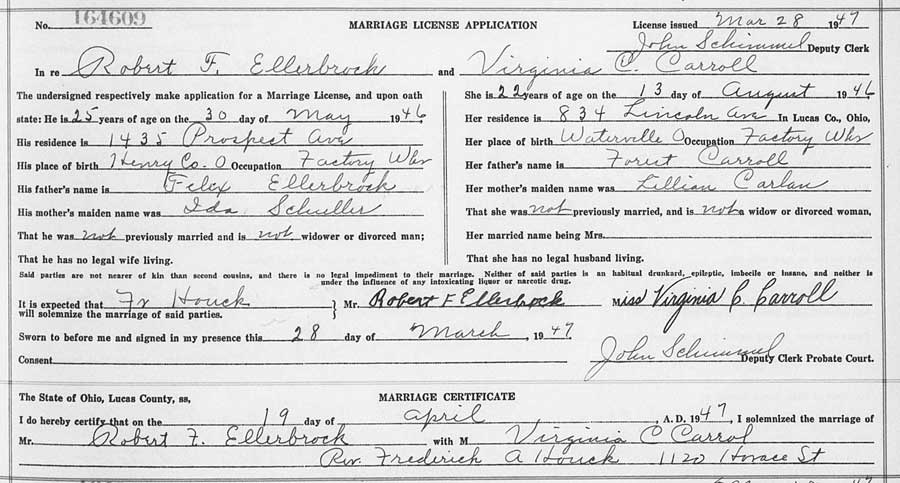 No. 164609 MARRIAGE LICENSE APPLICATION License issued Mar 28 1947
John Schimmel Deputy Clerk
In re Robert F. Ellerbrock and Virginia C. Carroll
The undersigned respectively make application for a Marriage License, and upon oath
state: He is 25 years of age on the 30 day of May 1946,
His residence is 1435 Prospect Ave
His place of birth Henry Co. O Occupation Factory Wkr
His father's name is Felex Ellerbrock
His mother's maiden name was Ida Schuller
That he was not previously married and is not widower or divorced man;
That he has no legal wife living.
She is 22 years of age on the 13 day of August 1946
Her residence is 834 Lincoln Ave In Lucas Co., Ohio,
Her place of birth Waterville O Occupation Factory Wkr
Her father's name is Forest Carroll
Her mother's maiden name was Lillian Carlan
That she was not previously married, and is not a widow or divorced woman,
Her married name being Mrs.
That she has no legal husband living.
Said parties are not nearer of kin than second cousins, and there is no legal impediment to their marriage. Neither of said parties is an habitual drunkard, epileptic, imbecile or insane, and neither is
under the influence of any intoxicating liquor or narcotic drug.
It is expected that Fr Houck
will solemnize the marriage of said parties.
Mr. Robert F Ellerbrock Miss Virginia C. Carroll
Sworn to before me and signed in my presence this 28 day of March, 1947
Consent John Schimmel Deputy Clerk Probate Court.
The State of Ohio, Lucas County, ss, MARRIAGE CERTIFICATE
I do hereby certify that on the 19 day of April A. D. 1947, I solemnized the marriage of
Mr. Robert F. Ellerbrock with M Virginia C Carrol
Rev. Frederick A Houck 1120 Horace St